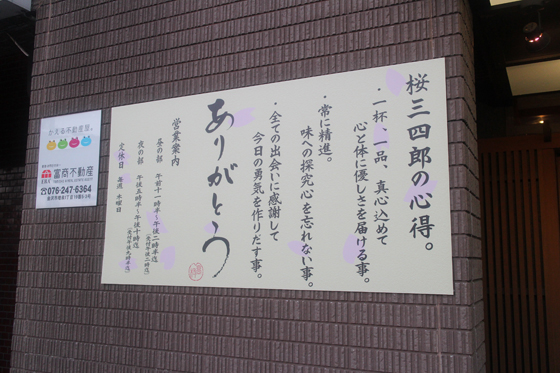 桜三四郎の心得。
・一杯、一品、真心込めて
心と体に優しさを届ける事。
・常に精進。
味への探究心を忘れない事。
・全ての出会いに感謝して
今日の勇気を作りだす事。
ありがとう
営業案内
昼の部 午前十一時半～午後二時半迄
（受付午後二時迄）
夜の部 午後五時半～午後十時迄
定休日 毎週 水曜日
かえる不動産屋。
富商不動産
076-247-6364